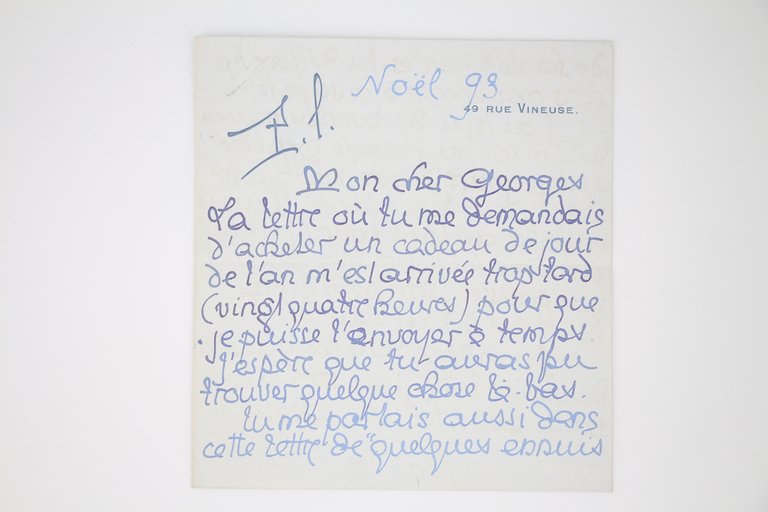 Noël 93
49 RUE VINEUSE.
Mon cher Georges
La lettre où tu me demandais
d'acheter un cadeau de jour
de l'an m'est arrivée trop tard
(vingt quatre heures) pour que
je puisse l'envoyer à temps.
J'espère que tu auras pu
trouver quelque chose là-bas.
Tu me parlais aussi dans
cette lettre de quelques ennuis